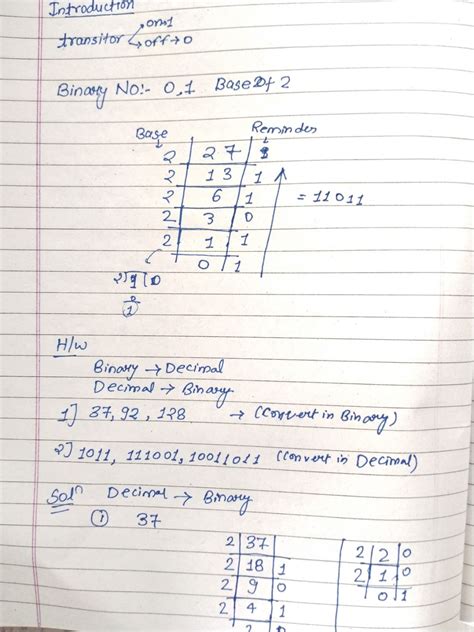 Introduction
transitor → on→1
→ off→0
Binary No:- 0,1 Base of 2
Base Reminder
2 | 27 |
2 | 13 | 1
2 | 6 | 1 = 11011
2 | 3 | 0
2 | 1 | 1
0 | 1
H/w
Binary → Decimal
Decimal → Binary
1] 37, 92, 128 → (Convert in Binary)
2] 1011, 111001, 10011011 (Convert in Decimal)
Solⁿ Decimal → Binary
① 37
2 | 37 |
2 | 18 | 1
2 | 9 | 0
2 | 4 | 1
2 | 2 | 0
2 | 2 | 0
2 | 1 | 0
0 | 1